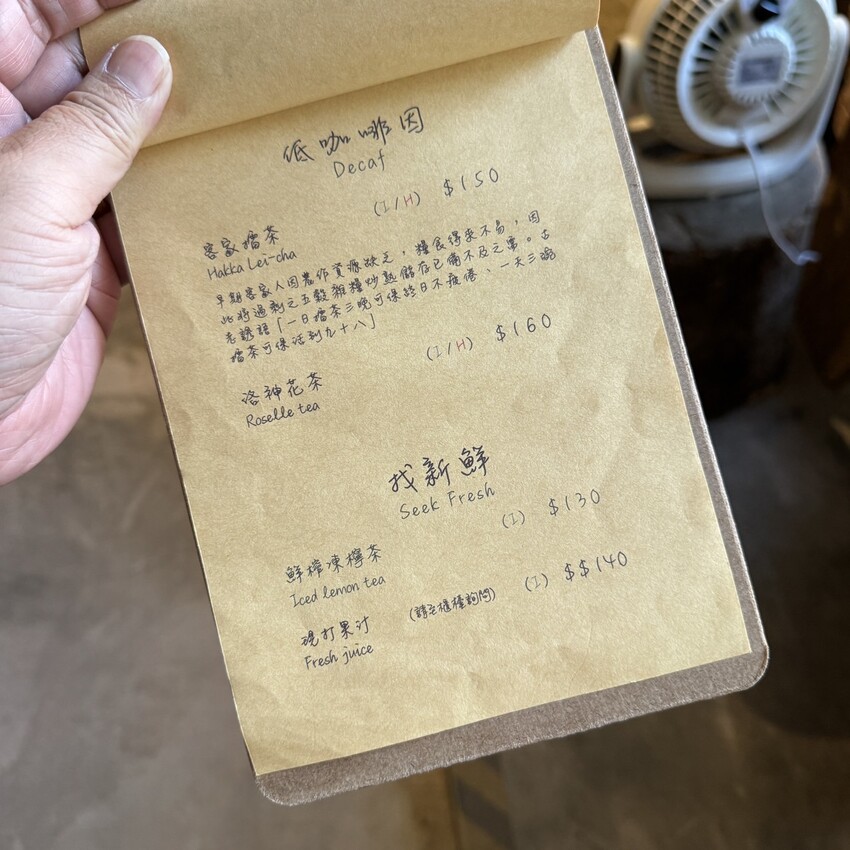 低咖啡因
Decaf
客家擂茶 (I/H) $150
Hakka Lei-cha
早期客家人因農作資源缺乏，糧食得來不易，因
此將過剩之五穀雜糧炒熟儲存已備不及之需。古
老諺語「一日擂茶三晚可保終日不疲倦、一天三晚
擂茶可保活到九十八」
洛神花茶 (I/H) $160
Roselle tea
找新鮮
Seek Fresh
鮮榨凍檸茶 (I) $130
Iced lemon tea
現打果汁 (請至櫃檯詢問) (I) $$140
Fresh juice